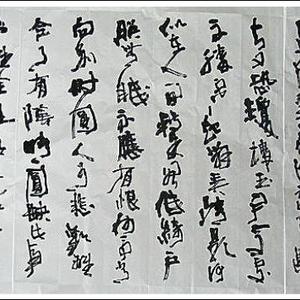 去又恐瓊樓玉宇高處
不勝寒起舞弄清影何
似在人間轉朱閣低綺戶
照無眠不應有恨何事長
向別時圓人有悲歡離
合月有陰晴圓缺此事